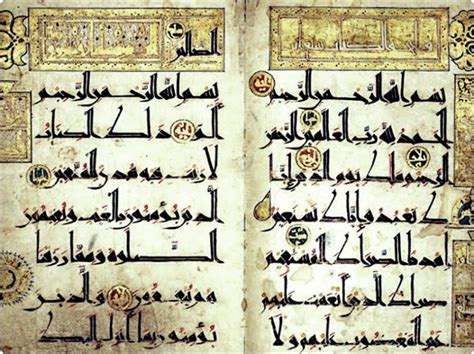 بسم الله الرحمن الرحيم
الحمد لله رب العالمين ا
لرحمن الرحيم ملك يوم الدين ايا
ك نعبد واياك نستعين
اهدنا الصراط المستقيم
صراط الذين انعمت عليهم
غير المغضوب عليهم ولا
الضالين
بسم الله الرحمن الرحيم
الم ذلك الكتاب
لا ريب فيه هدى للمتقين
الذين يؤمنون بالغيب ويقيمون
الصلوة ومما رزقنا
هم ينفقون والذين
يؤمنون بما انزل اليك